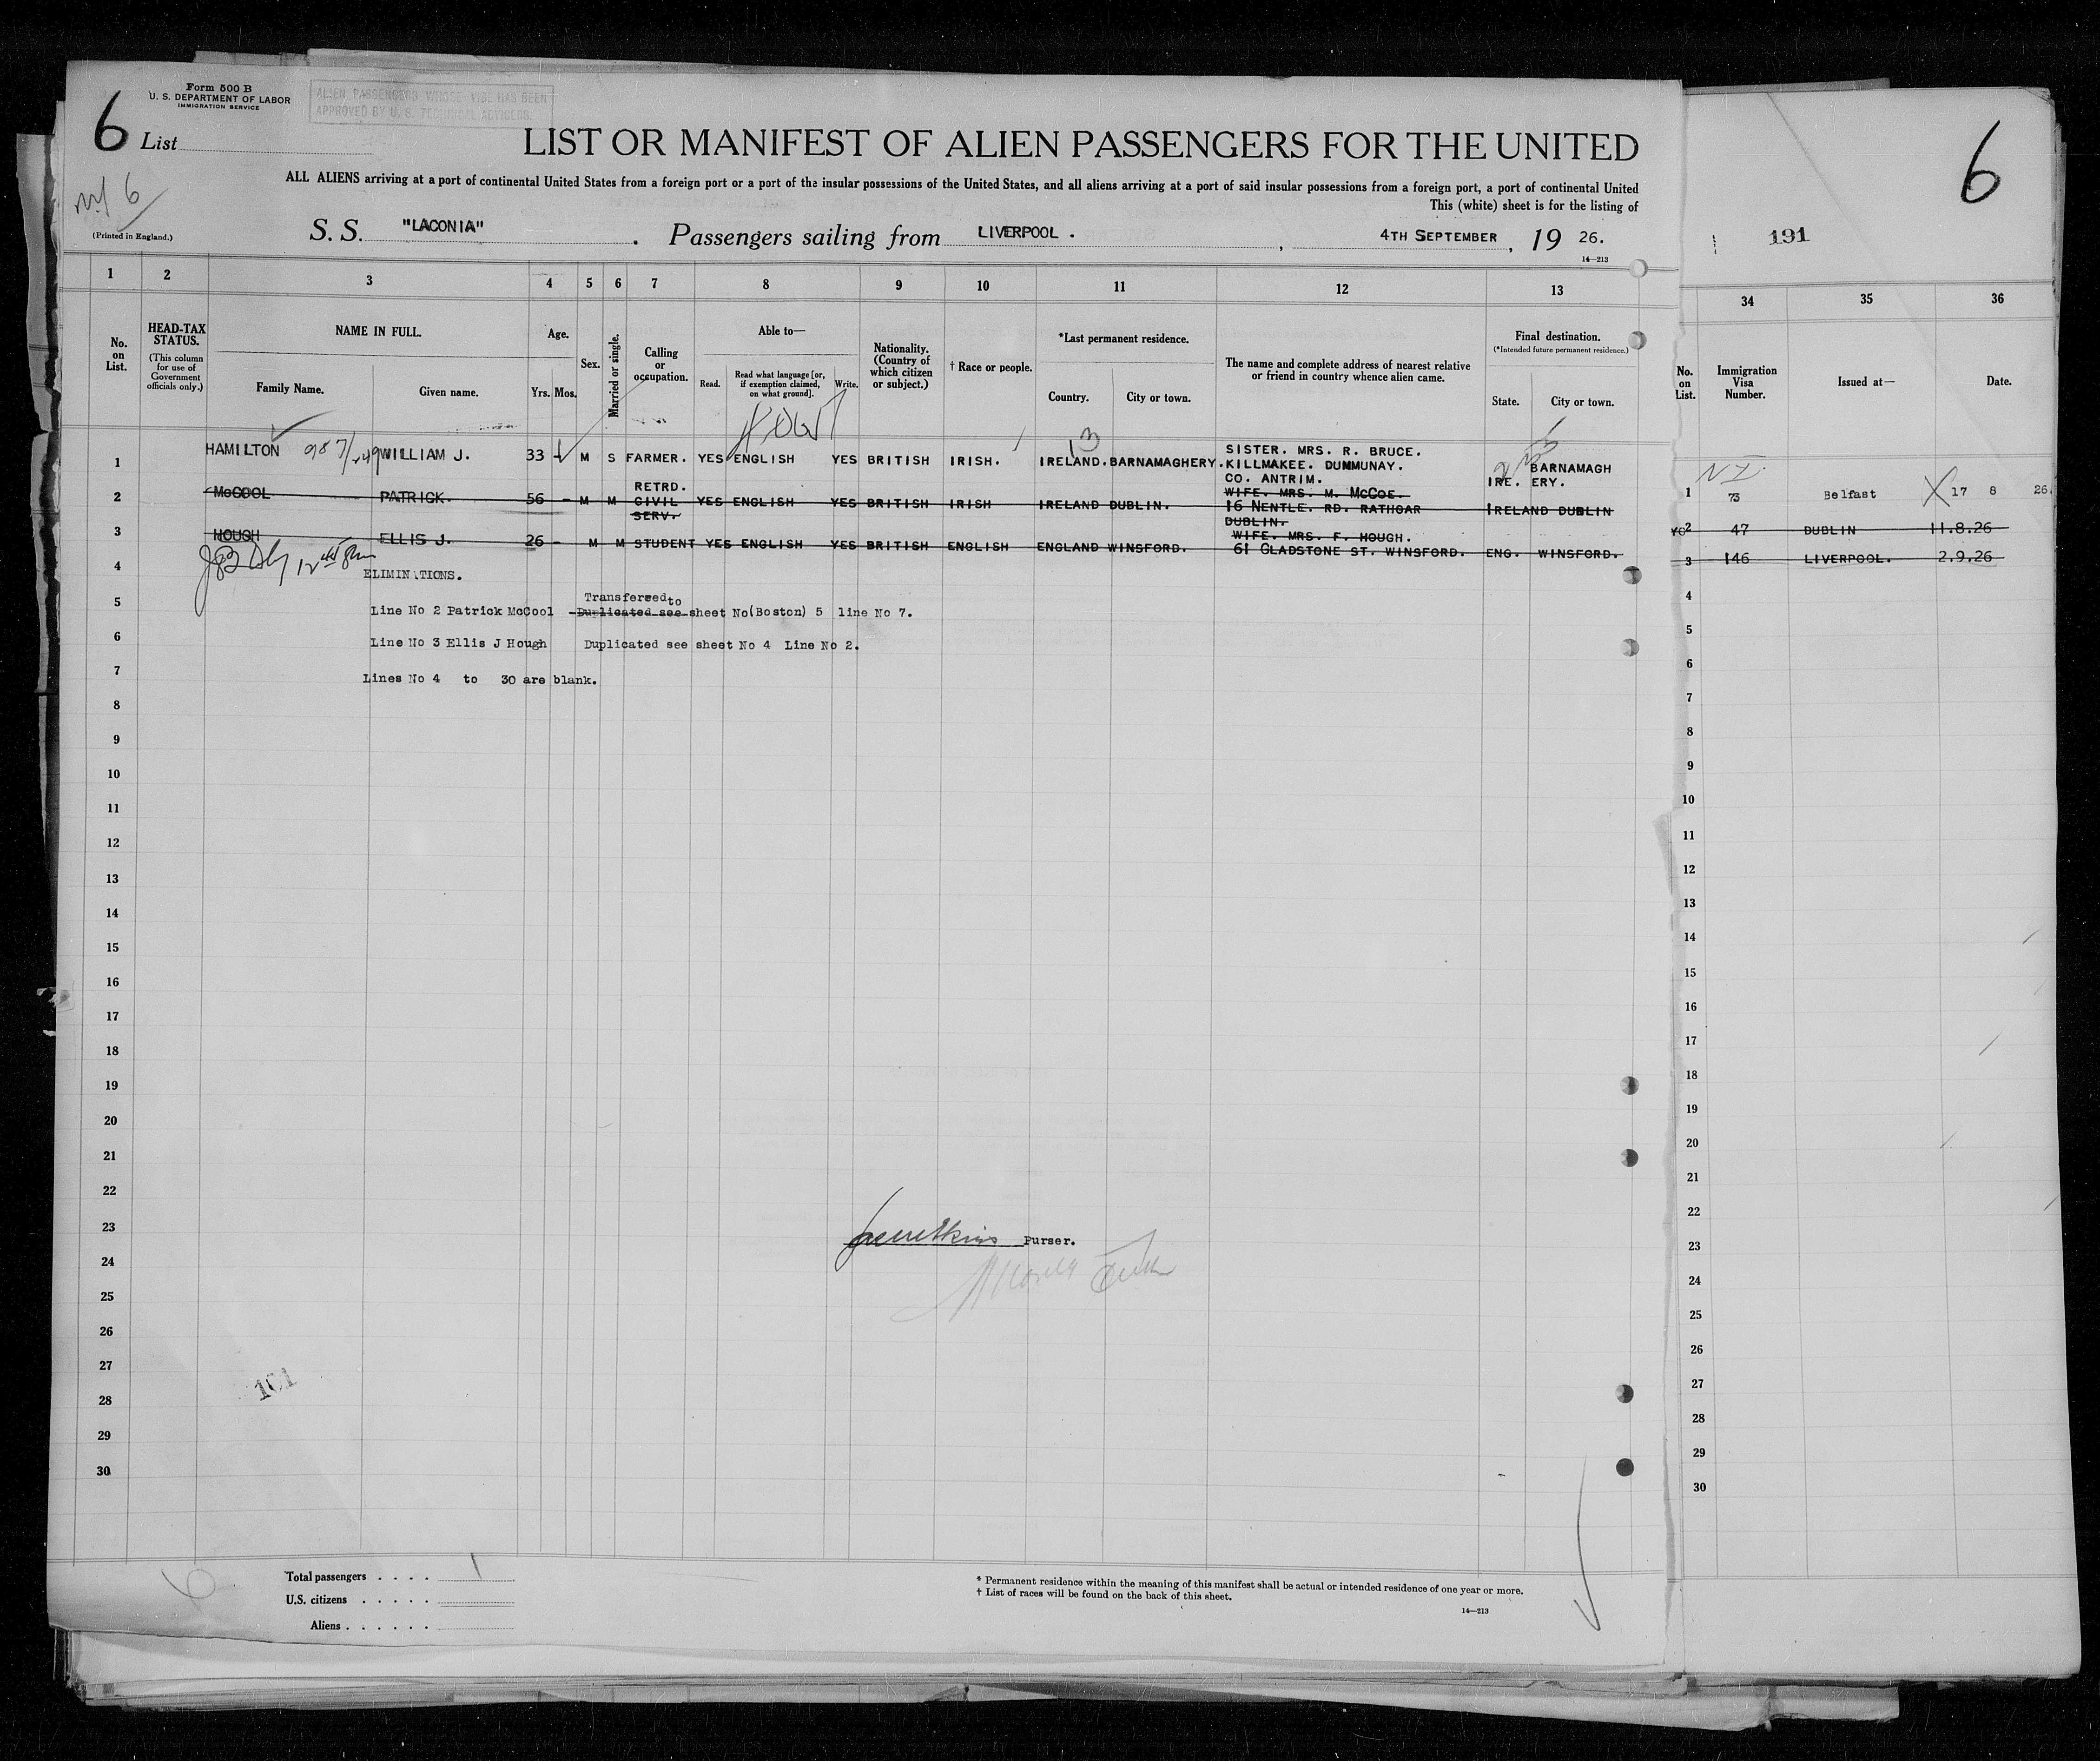 Form 500 B
U. S. DEPARTMENT OF LABOR
IMMIGRATION SERVICE
ALIEN PASSENGERS WHOSE VISE HAS BEEN
APPROVED BY U. S. TECHNICAL ADVISERS.
6 List
6
6
(Printed in England.)
LIST OR MANIFEST OF ALIEN PASSENGERS FOR THE UNITED
ALL ALIENS arriving at a port of continental United States from a foreign port or a port of the insular possessions of the United States, and all aliens arriving at a port of said insular possessions from a foreign port, a port of continental United
This (white) sheet is for the listing of
S. S. "LACONIA" . Passengers sailing from LIVERPOOL . , 4TH SEPTEMBER , 19 26.
14—213
191
1 2 3 4 5 6 7 8 9 10 11 12 13 34 35 36
No. on List.
HEAD-TAX STATUS.
(This column for use of Government officials only.)
NAME IN FULL.
Family Name. Given name.
Age.
Yrs. Mos.
Sex.
Married or single.
Calling or occupation.
Able to—
Read. Read what language [or, if exemption claimed, on what ground]. Write.
Nationality. (Country of which citizen or subject.)
† Race or people.
*Last permanent residence.
Country. City or town.
The name and complete address of nearest relative or friend in country whence alien came.
Final destination.
(*Intended future permanent residence.)
State. City or town.
No. on List.
Immigration Visa Number.
Issued at—
Date.
13
1 HAMILTON WILLIAM J. 33 - M S FARMER. YES ENGLISH YES BRITISH IRISH. IRELAND. BARNAMAGHERY. SISTER. MRS. R. BRUCE. KILLMAKEE. DUMMUNAY. CO. ANTRIM. IRE. BARNAMAGH ERY.
1 N I 73 Belfast 17 8 26.
2 McCOOL PATRICK. 56 - M M RETRD. CIVIL SERV. YES ENGLISH YES BRITISH IRISH IRELAND DUBLIN. WIFE. MRS. M. McCOE. 16 NENTLE. RD. RATHGAR DUBLIN. IRELAND DUBLIN
2 47 DUBLIN 11.8.26
3 HOUGH ELLIS J. 26 - M M STUDENT YES ENGLISH YES BRITISH ENGLISH ENGLAND WINSFORD. WIFE. MRS. F. HOUGH. 61 GLADSTONE ST. WINSFORD. ENG. WINSFORD.
3 146 LIVERPOOL. 2.9.26
4 ELIMINATIONS.
Transferred to
5 Line No 2 Patrick McCool Duplicated see sheet No (Boston) 5 line No 7.
6 Line No 3 Ellis J Hough Duplicated see sheet No 4 Line No 2.
7 Lines No 4 to 30 are blank.
8
9
10
11
12
13
14
15
16
17
18
19
20
21
22
23
Purser.
24
25
26
27
28
29
30
4
5
6
7
8
9
10
11
12
13
14
15
16
17
18
19
20
21
22
23
24
25
26
27
28
29
30
6
Total passengers . . . . 1
U.S. citizens . . . . .
Aliens . . . . . .
* Permanent residence within the meaning of this manifest shall be actual or intended residence of one year or more.
† List of races will be found on the back of this sheet.
14—213